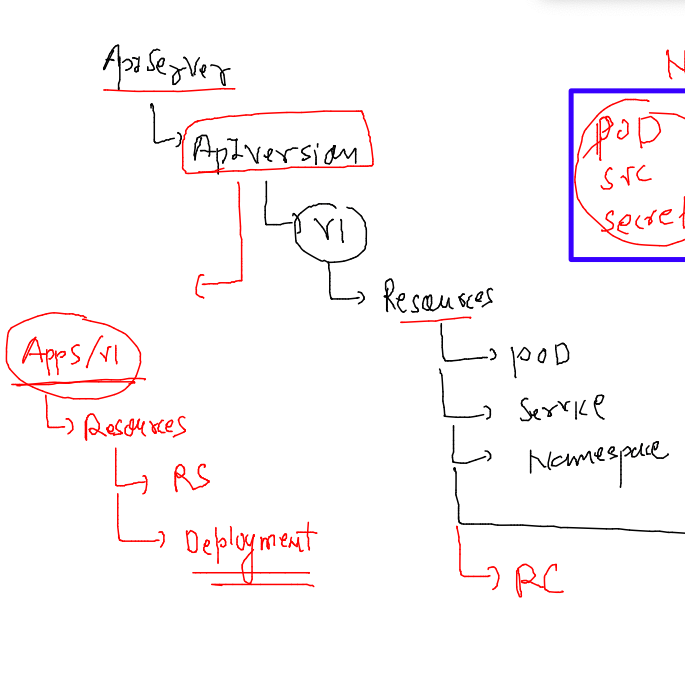 ApiServer
ApIversion
V1
Resources
POD
Service
Namespace
RC
Apps/v1
Resources
RS
Deployment
N
POD
svc
secret